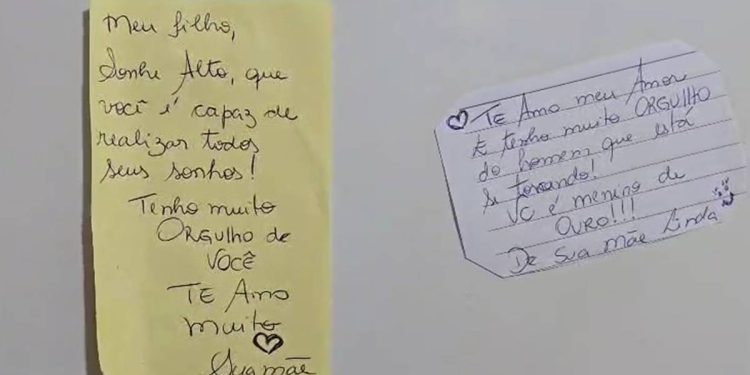 Meu filho,
Sonhe Alto, que
você é capaz de
realizar todos
seus sonhos!
Tenho muito
ORGULHO de
VOCÊ
TE Amo
muito
Sua mãe
TE Amo meu Amor
E tenho muito ORGULHO
do homem que está
se tornando!
VC é menino de
OURO!!!
De sua mãe Linda